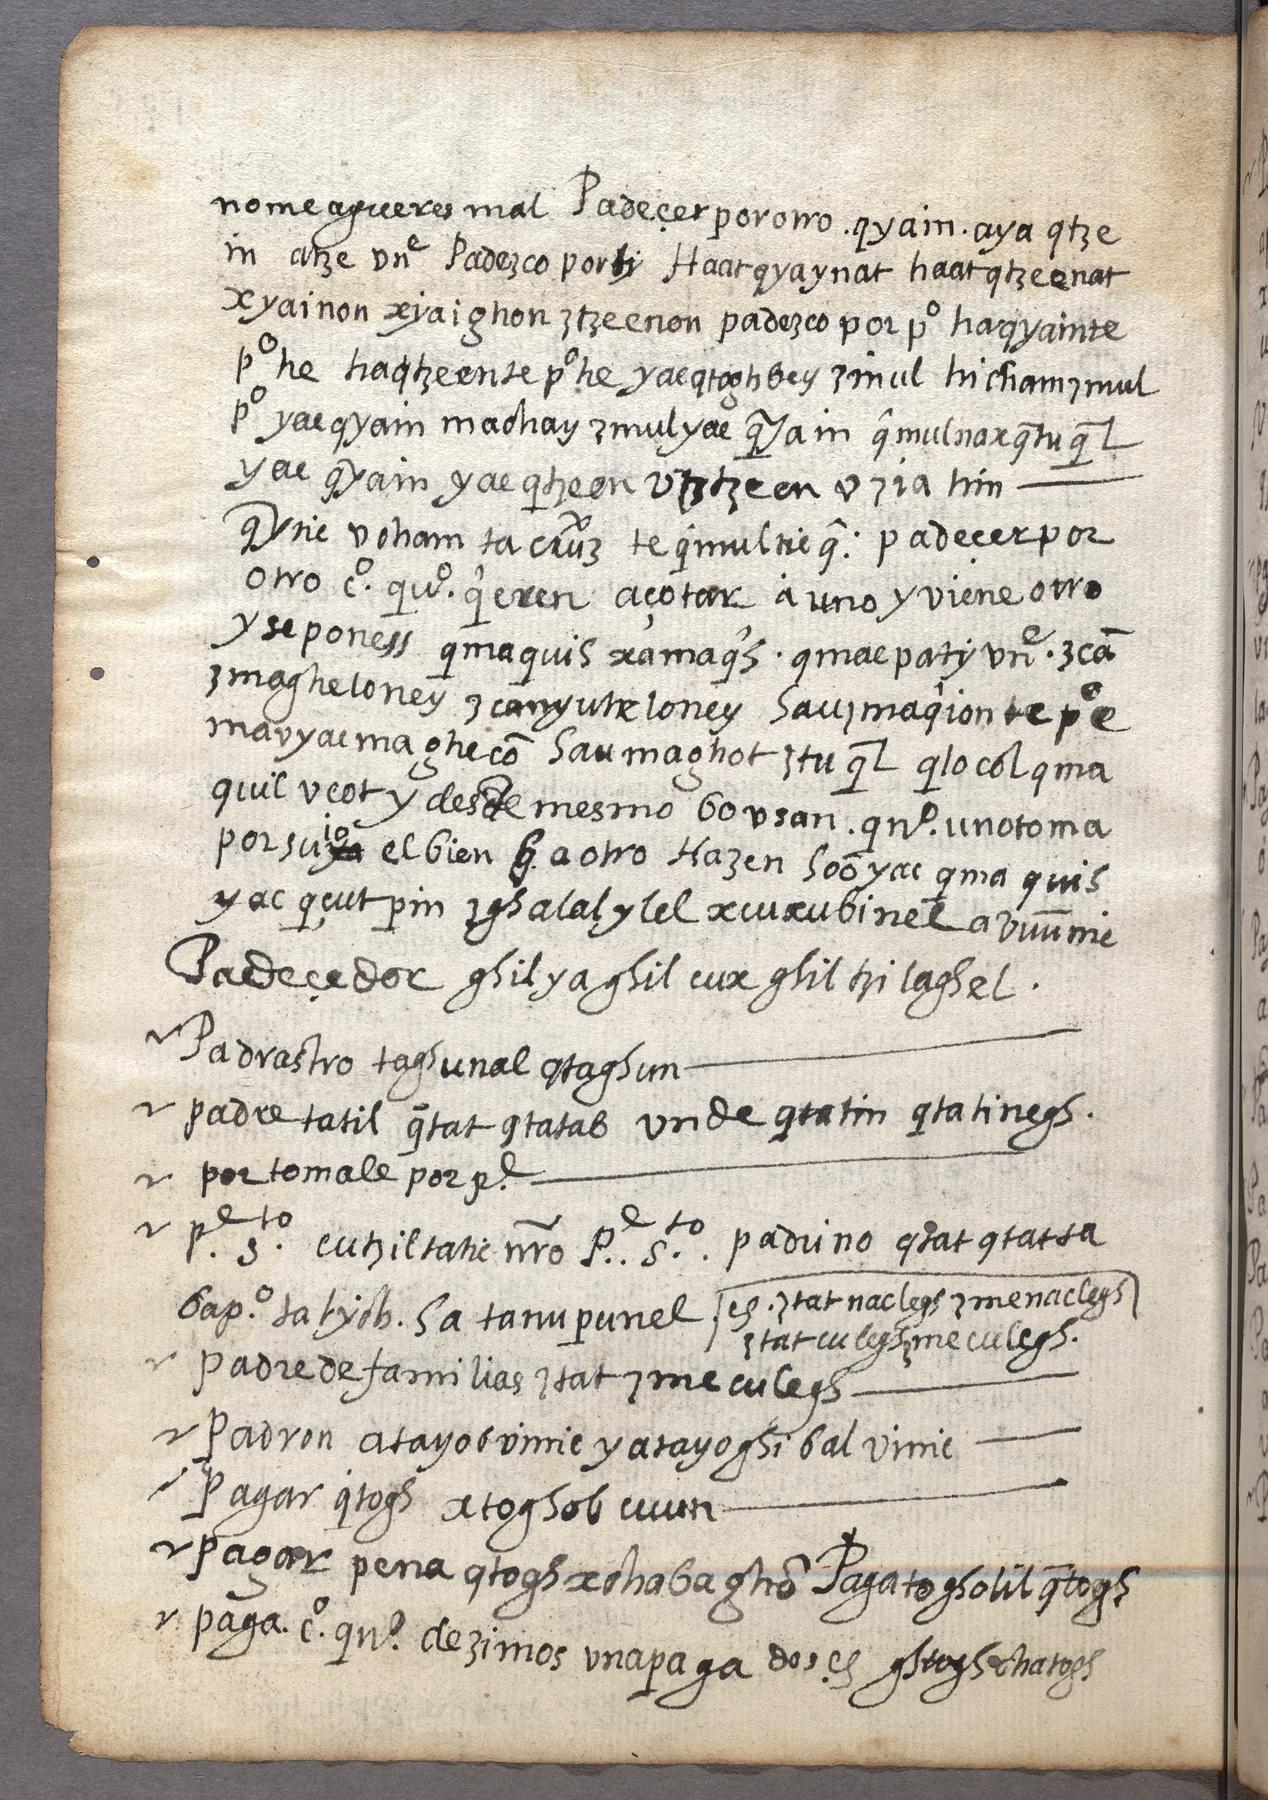 nome agueres mal Padeçer por otro . qyain . aya qtze
in atze vnᵉ Padezco por ti Haat qyaynat haat qtzeenat
xyainon xyaighon ztzeenon padezco por pᵒ haqyainte
pᵒ he haqtzeente pᵒ he yaeqtoghbey zmul hicham zmul
pᵒ yae qyain machay zmul yae q̃yain q̃mulnax q̃tu q̃l
yae q̃yain yae qtzeen vtztzeen v zia hin
q̃ytie vcham ta cruz te q̃multie q̃: padeçer por
otro cᵒ. quᵒ. q̃eren açotar á uno y viene otro
y se poness qmaquis xamaq̃s . qmae patiy vnᵉ . zcã
zmagheloney zcanyutzeloney Sauzmaq̃ion te pᵒe
mavyaemaghe cõ Saumaghot ztu q̃l qlocol qma
quil vcot y desde mesmo bo vsan . qnᵒ. uno toma
por suio el bien q̃. a otro Hazen Soõ yac qma quis
yac qçutpin zghalal ylel xcuxubinel a vuũnie
Padeçedor ghil ya ghil cux ghil tzi laghel .
Padrastro taghunal qtaghun
padre tatil q̃tat qtatab vnde qtatin qtatinegh .
por tomale por pᵉ.
pᵉ. sᵗᵒ. cutzil tatie nrõ Pᵉ.. sᵗᵒ.. padrino qtat qtatta
bap.ᵒ ta tyoh. Sa tanupunel es . ztat naclegh zmenaclegh
ztat culegh zme culegh.
padre de familias ztat zme culegh
Padron atayob vinie y atayoghibal vinie
Pagar q̃togh xtoghob cuun
pagar pena qtogh xchabaghõ Paga togholil q̃togh
paga. cᵒ. qnᵒ. dezimos vna paga dos es ghtogh chatogh